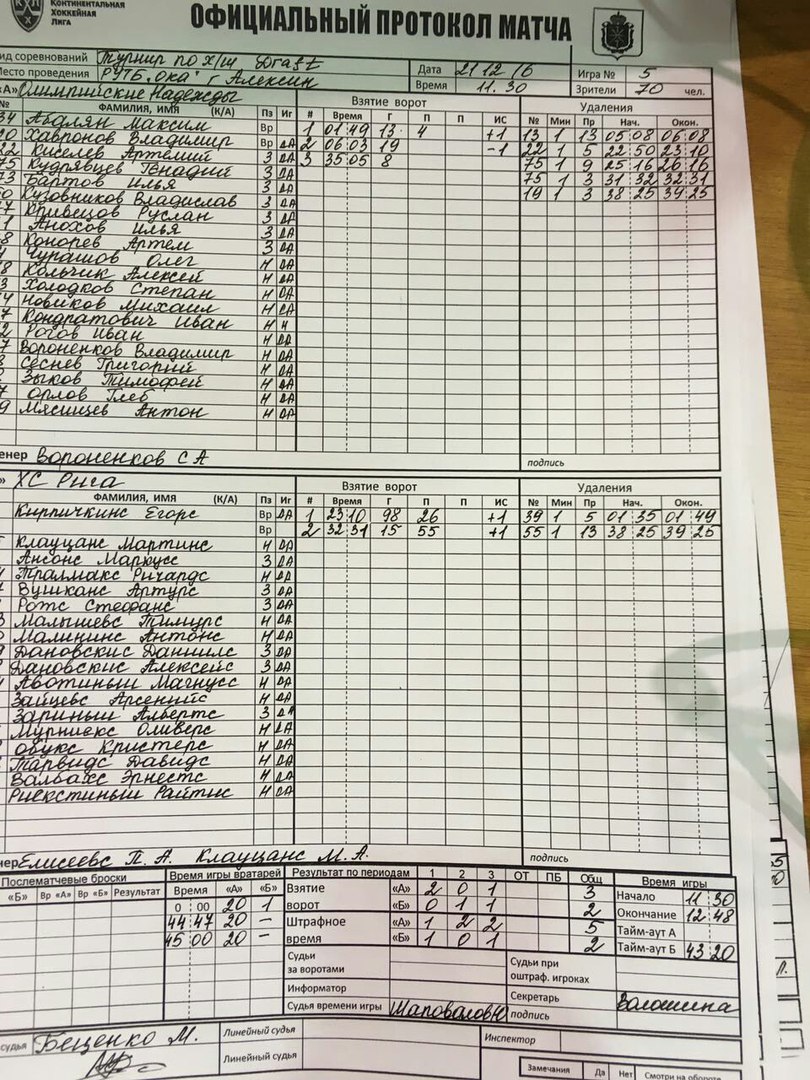 КОНТИНЕНТАЛЬНАЯ
ХОККЕЙНАЯ
ЛИГА
ОФИЦИАЛЬНЫЙ ПРОТОКОЛ МАТЧА
ид соревнований Турнир по х/ш
Дата 21 12 16 Игра № 5
Место проведения РУТБ "Ока" г Алексин
Время 11.30 Зрители 70 чел.
«А» Олимпийские Надежды Взятие ворот Удаления
№ ФАМИЛИЯ, ИМЯ (К/А) Пз Иг # Время Г П П ИС № Мин Пр Нач. Окон.
34 Абалян Максим Вр 1 01:49 13 4 +1 13 1 13 05:08 06:08
20 Хавронов Владимир Вр ДА 2 06:03 19 -1 22 1 5 22:50 23:10
22 Киселев Артемий З ДА 3 35:05 8 75 1 9 25:16 26:16
75 Кудрявцев Генадий З ДА 75 1 3 31:32 32:31
73 Бартов Илья З ДА 19 1 3 38:25 39:25
0 Кузовников Владислав З ДА
7 Кривецов Руслан З ДА
1 Анохов Илья З ДА
8 Конорев Артем З ДА
Чурашов Олег Н ДА
8 Кольчик Алексей Н ДА
3 Холодков Степан Н ДА
4 Новиков Михаил Н ДА
7 Кондратович Иван Н Н
2 Рогов Иван Н ДА
7 Вороненков Владимир Н ДА
Сеснев Григорий Н ДА
Зыков Тимофей Н ДА
7 Орлов Глеб Н ДА
9 Мясищев Антон Н ДА
енер Вороненков С А подпись
» ХС Рига Взятие ворот Удаления
ФАМИЛИЯ, ИМЯ (К/А) Пз Иг # Время Г П П ИС № Мин Пр Нач. Окон.
Кирпичкинс Егорс Вр ДА 1 23:10 98 26 +1 39 1 5 01:35 01:49
Вр 2 32:31 15 55 +1 55 1 13 38:25 39:25
Клауцанс Мартинс Н ДА
Ансонс Маркусс З ДА
Тралмакс Ричардс Н ДА
Вушканс Артурс З ДА
Ротс Стефанс З ДА
Малышевс Тимурс Н ДА
Малицинс Антонс Н ДА
Дановскис Даниилс З ДА
Дановскис Алексейс З ДА
Аботиньш Магнусс Н ДА
Зайцевс Арсенийс Н ДА
Зариньш Альбертс З ДА
Мурниекс Оливерс Н ДА
Обукс Кристерс Н ДА
Тарвидс Давидс Н ДА
Валбакс Эрнестс Н ДА
Риекстиньш Райтис Н ДА
нер Елисеевс П. А. Клауцанс М. А. подпись
Послематчевые броски Время игры вратарей Результат по периодам 1 2 3 ОТ ПБ Общ Время игры
«Б» Вр «А» Вр «Б» Результат Время «А» «Б» Взятие ворот «А» 2 0 1 3 Начало 11 30
0 00 20 1 «Б» 0 1 1 2 Окончание 12 48
44 47 20 – Штрафное время «А» 1 2 2 5 Тайм-аут А
45 00 20 – «Б» 1 0 1 2 Тайм-аут Б 43 20
Судьи за воротами Судьи при оштраф. игроках
Информатор Секретарь Волошина
Судья времени игры Шаповалов подпись
судья Бещенко М. Линейный судья Инспектор
Линейный судья Замечания Да Нет Смотри на обороте